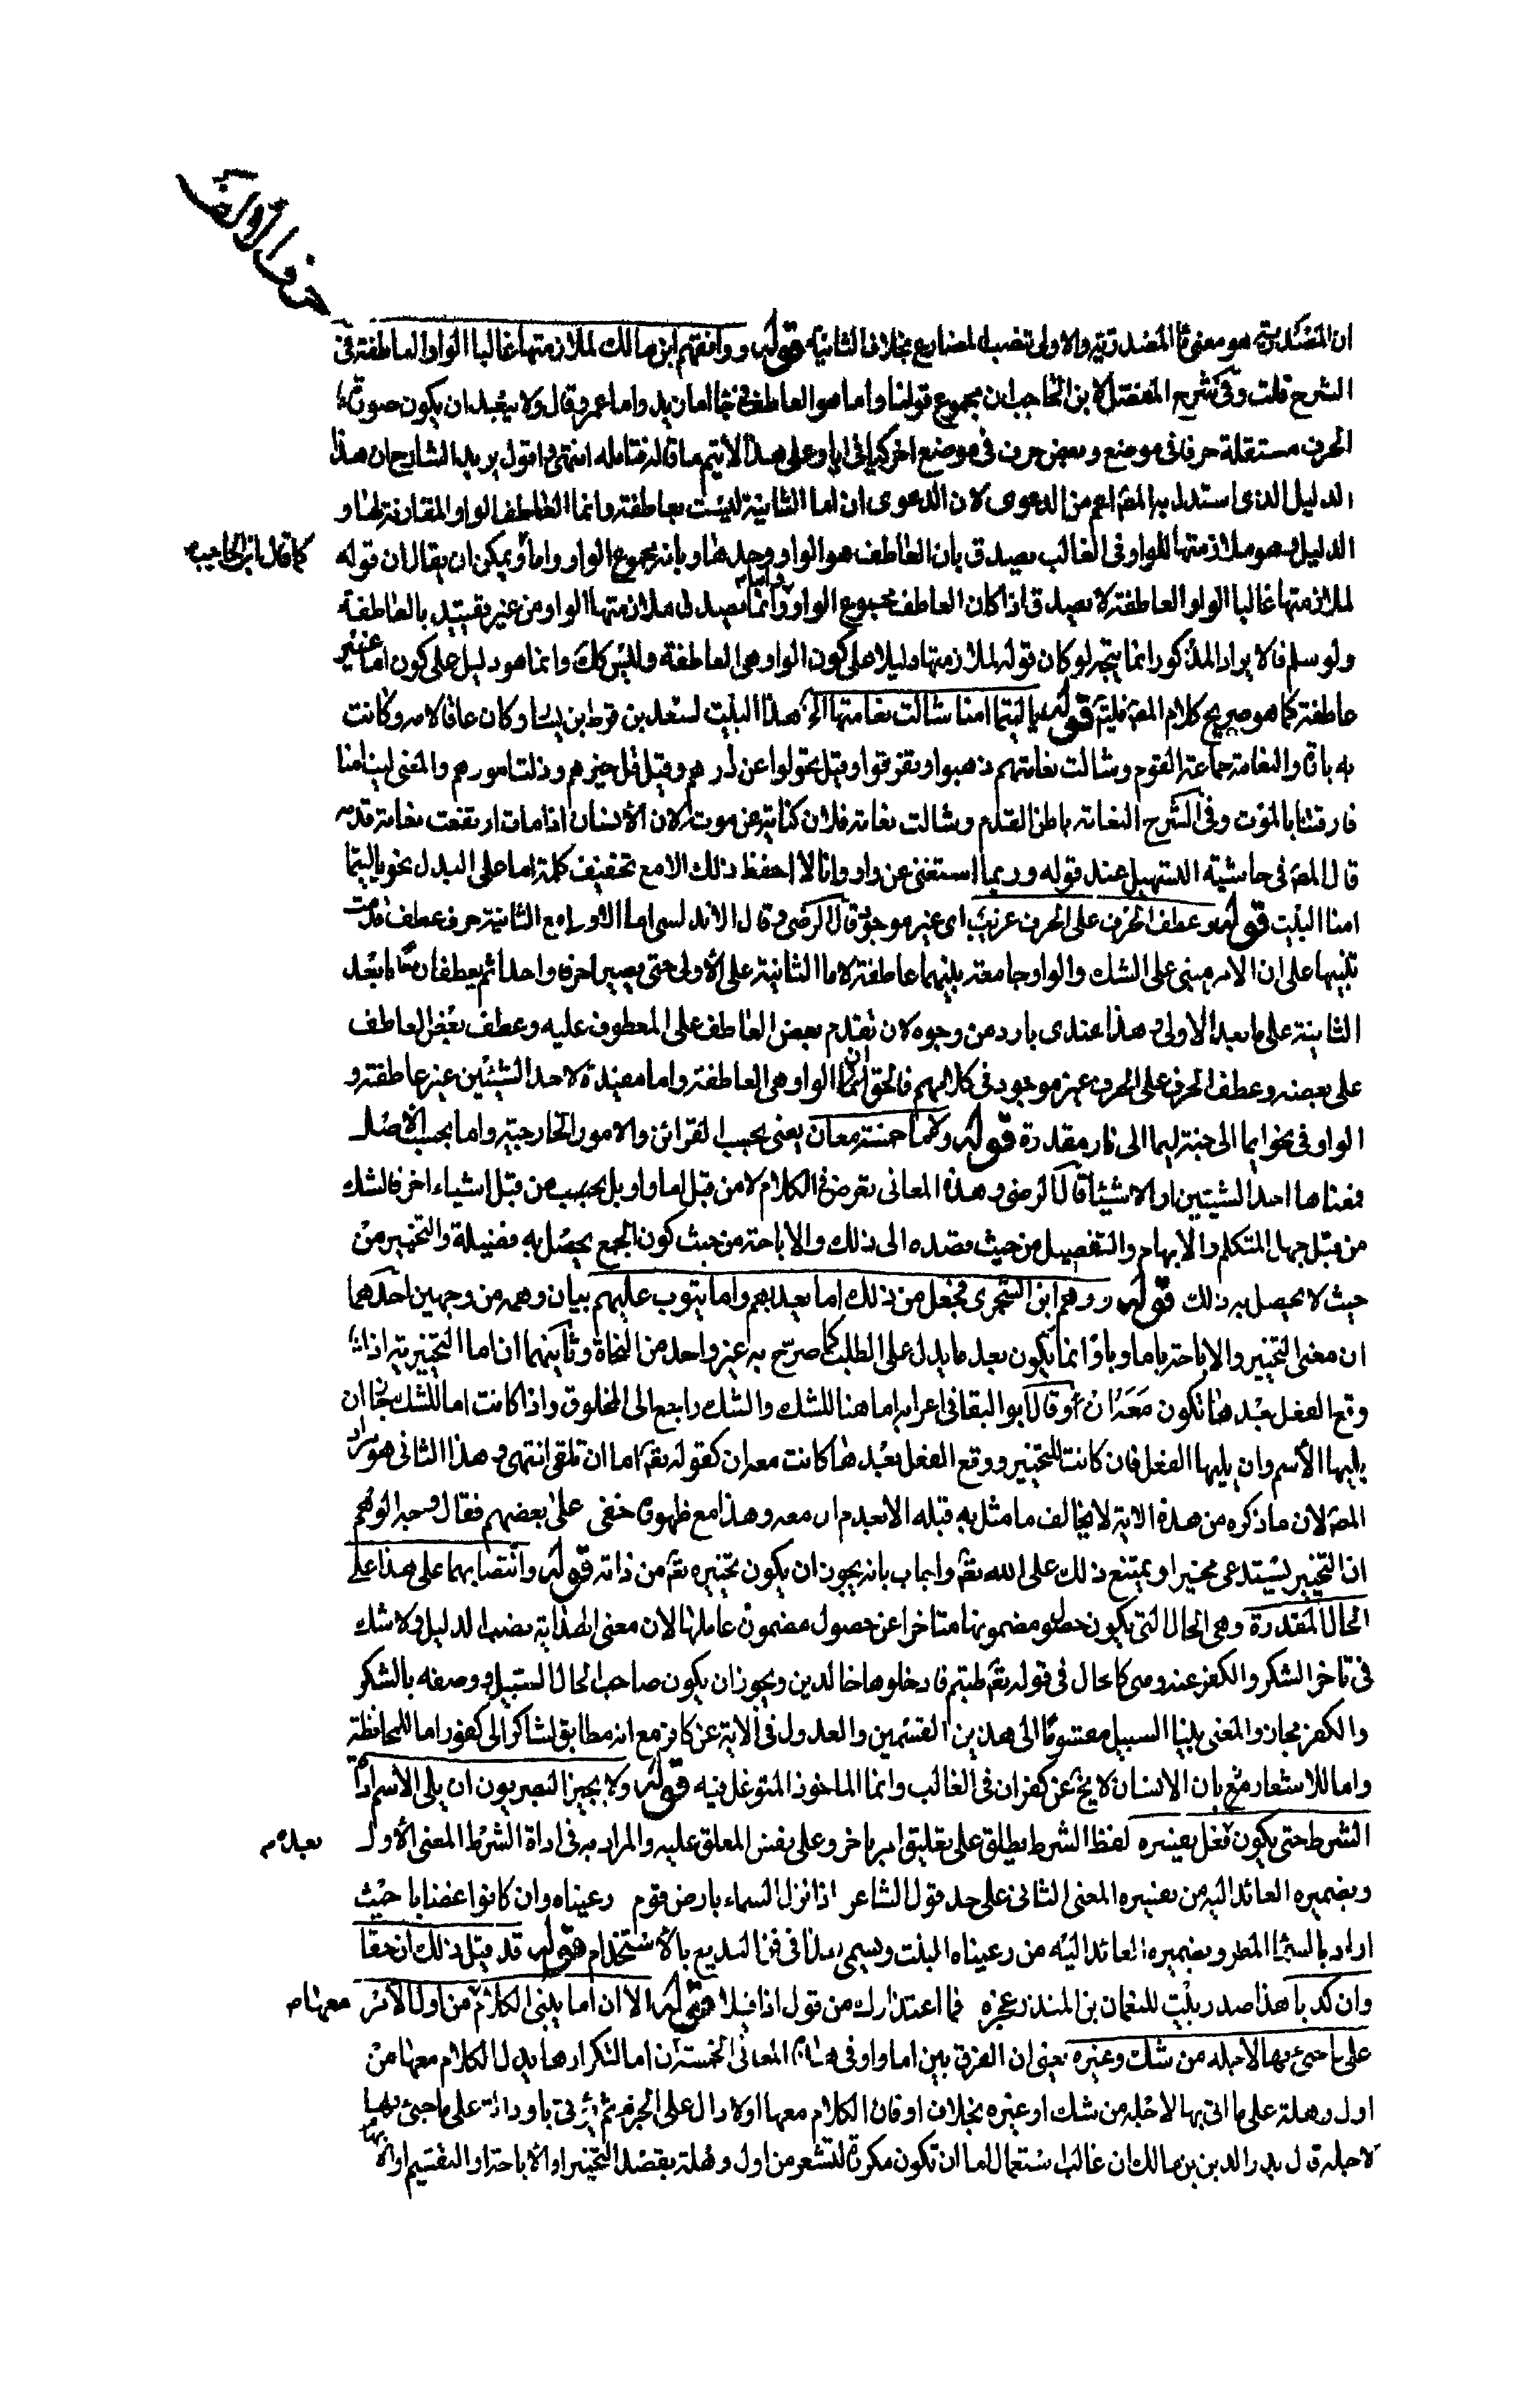 حرف الألف
ان المصدرية هو معنى المصدرية والاولى تنصب المضارع بخلاف الثانية قوله ووافقهم ابن مالك لملازمتها غالبا الواو العاطفة في
الشرح قلت وفي شرح المفصل لابن الحاجب ان مجموع قولنا واما هو العاطف في جاءنى اما زيد واما عمرو قال ولا يبعد ان يكون صورة
الحرف مستقلة حرفا في موضع وبعض حرف في موضع اخر كيا في ايا وعلى هذا لا يتم ما قاله فتامله انتهى واقول يريد الشارح ان هذا
الدليل الذى استدل به المص اعم من الدعوى لان الدعوى ان اما الثانية ليست بعاطفة وانما العاطف الواو المقارنة لها و
الدليل وهو ملازمتها للواو في الغالب يصدق بان العاطف هو الواو وحدها وبانه مجموع الواو واما ويمكن ان يقال ان قوله
كما قال ابن الحاجب صح
لملازمتها غالبا الواو العاطفة لا يصدق اذا كان العاطف مجموع الواو واما وانما يصدق ملازمتها الواو من غير تقييد بالعاطفة
ولو سلم فالايراد المذكور انما يتجه لو كان قوله لملازمتها دليلا على كون الواو هى العاطفة وليس كك وانما هو دليل على كون اما غير
عاطفة كما هو صريح كلام المص قوله ياليتما امنا شالت نعامتها الخ هذا البيت لسعد بن قرط بن سيار وكان عاقا لامه وكانت
به بارة والنعامة جماعة القوم وشالت نعامتهم ذهبوا وتفرقوا وقيل تحولوا عن دارهم وقيل قل خيرهم وذلت امورهم والمعنى ليت امنا
فارقتنا بالموت وفي الشرح النعامة باطن القدم وشالت نعامة فلان كناية عن موته لان الانسان اذا مات ارتفعت نعامة قدمه
قال المص في حاشية التسهيل عند قوله وربما استغنى عن واو وانا لا احفظ ذلك الا مع تخفيف كلمة اما على البدل نحو ياليتما
امنا البيت قوله وعطف الحرف على الحرف غريب اى غير موجود قال الرضى وقال الاندلسى اما الاولى مع الثانية حرف عطف قدمت
تنبيها على ان الامر مبنى على الشك والواو جامعة بينهما عاطفة لاما الثانية على الاولى حتى يصيرا حرفا واحدا ثم يعطفان معا ما بعد
الثانية على ما بعد الاولى وهذا عندى بارد من وجوه لان تقدم بعض العاطف على المعطوف عليه وعطف بعض العاطف
على بعضه وعطف الحرف على الحرف غير موجود في كلامهم فالحق ان الواو هى العاطفة واما مفيدة لاحد الشيئين غير عاطفة و
الواو في نحو ايما الى جنة ايما الى نار مقدرة قوله ولاما خمسة معان يعنى بحسب القرائن والامور الخارجية واما بحسب الاصل
فمعناها احد الشيئين او الاشياء قال الرضى وهذه المعانى تعرض في الكلام لا من قبل اما واو بل من قبل اشياء اخر فالشك
من قبل جهل المتكلم والابهام والتفصيل من حيث قصده الى ذلك والاباحة من حيث كون الجمع يحصل به فضيلة والتخيير من
حيث لا يحصل به ذلك قوله ووهم ابن الشجرى فجعل من ذلك اما يعذبهم واما يتوب عليهم بيان وهمه من وجهين احدهما
ان معنى التخيير والاباحة باما وباو انما يكون بعد ما يدل على الطلب كما صرح به غير واحد من النحاة وثانيهما ان اما التخييرية اذا
وقع الفعل بعدها تكون معه ان وقال ابو البقا في اعرابه اما هنا للشك والشك راجع الى المخلوق واذا كانت اما للشك جاز ان
يليها الاسم وان يليها الفعل فان كانت للتخيير ووقع الفعل بعدها كانت معه ان كقوله تع اما ان تلقى انتهى وهذا الثانى هو مراد
المص لان ما ذكره من هذه الاية لا يخالف ما مثل به قبله الا بعدم ان معه وهذا مع ظهوره خفى على بعضهم فقال وجه الوهم
ان التخيير يستدعى مخيرا ويمتنع ذلك على الله تع واجاب بانه يجوز ان يكون تخييره تع من ذاته قوله وانتصابهما على هذا على
الحال المقدرة وهى الحال التى يكون حصول مضمونها متاخرا عن حصول مضمون عاملها لان معنى الهداية نصب الدليل ولا شك
في تاخر الشكر والكفر عنه وهى كالحال في قوله تع طبتم فادخلوها خالدين ويجوز ان يكون صاحب الحال السبيل ووصفه بالشكر
والكفر مجاز والمعنى بينا السبيل مقسوما الى هذين القسمين والعدول في الاية عن كافر مع انه مطابق لشاكر الى كفور اما للمحافظة
واما للاشعار بان الانسان لا يخ عن كفران في الغالب وانما الماخوذ المتوغل فيه قوله ولا يجيز البصريون ان يلى الاسم اداة
الشرط حتى يكون بعده فعل يفسره لفظ الشرط يطلق على تعليق امر باخر وعلى نفس المعلق عليه والمراد به في اداة الشرط المعنى الاول
وبضميره العائد اليه من يفسره المعنى الثانى على حد قول الشاعر اذا نزل السماء بارض قوم رعيناه وان كانوا غضابا حيث
اراد بالسماء المطر وبضميره العائد اليه من رعيناه النبت ويسمى هذا في فن البديع بالاستخدام قوله قد قيل ذلك ان حقا
وان كذبا هذا صدر بيت للنعمان بن المنذر عجزه فما اعتذارك من قول اذا قيلا قوله الا ان اما يبنى الكلام معها من اول الامر
على ما جىء بها لاجله من شك وغيره يعنى ان الفرق بين اما واو في هذه المعانى الخمسة ان اما لتكرارها يدل الكلام معها من
اول وهلة على ما اتى بها لاجله من شك او غيره بخلاف او فان الكلام معها اولا دال على الجزم ثم يؤتى باو دالة على ما جىء بها
لاجله قال بدر الدين بن مالك ان غالب استعمال اما ان تكون مكررة لتشعر من اول وهلة بقصد التخيير او الاباحة او التقسيم او الابهام